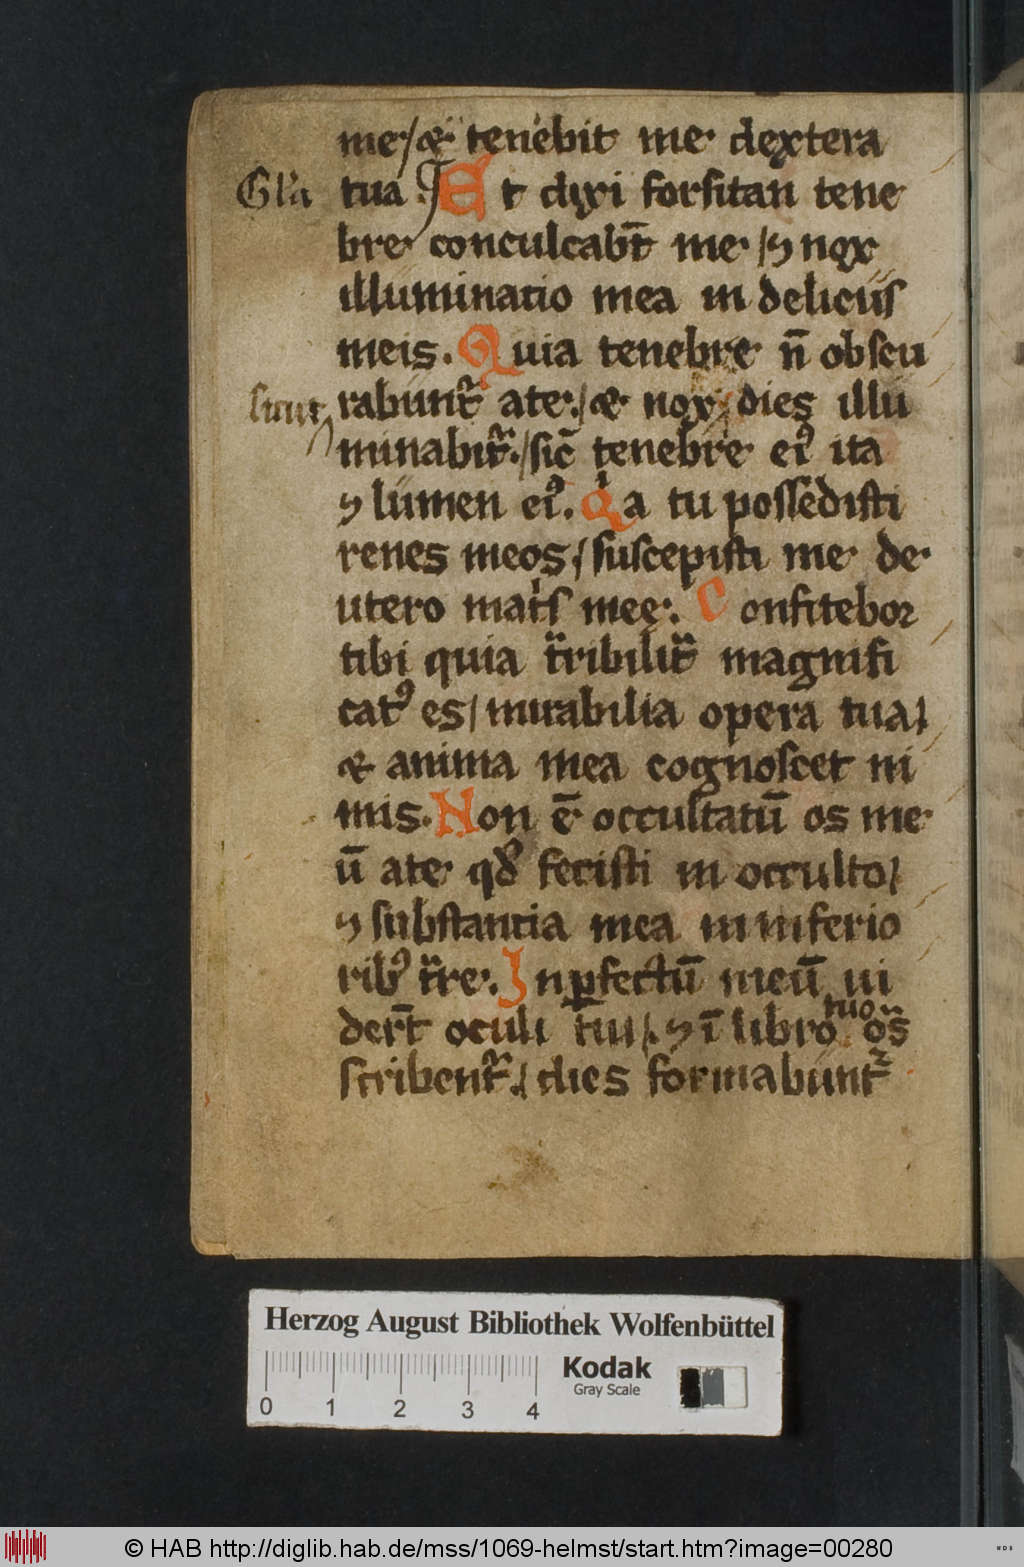 me / & tenebit me dextera
Gl'a tua . Et dixi forsitan tene
bre conculcabt̄ me / ⁊ nox
illuminatio mea in deliciis
meis. Quia tenebre n̄ obscu
sicut rabunt᷑ a te. / & nox dies illu
minabit᷑. / sic̄ tenebre ei⁹ ita
⁊ lumen ei⁹. Qa tu possedisti
renes meos / suscepisti me de
utero mat's mee. Confitebor
tibi quia t᷑ribilit᷑ magnifi
cat⁹ es / mirabilia opera tua /
& anima mea cognoscet ni
mis. Non ē occultatū os me
ū a te qd̓ fecisti in occulto /
⁊ substantia mea in inferio
rib⁹ t᷑re. Inꝑfectū meū ui
dert̄ oculi tui / ⁊ ī libro tuo om̄s
scribent᷑. / dies formabunt᷑
Herzog August Bibliothek Wolfenbüttel
Kodak
Gray Scale
0 1 2 3 4
© HAB http://diglib.hab.de/mss/1069-helmst/start.htm?image=00280